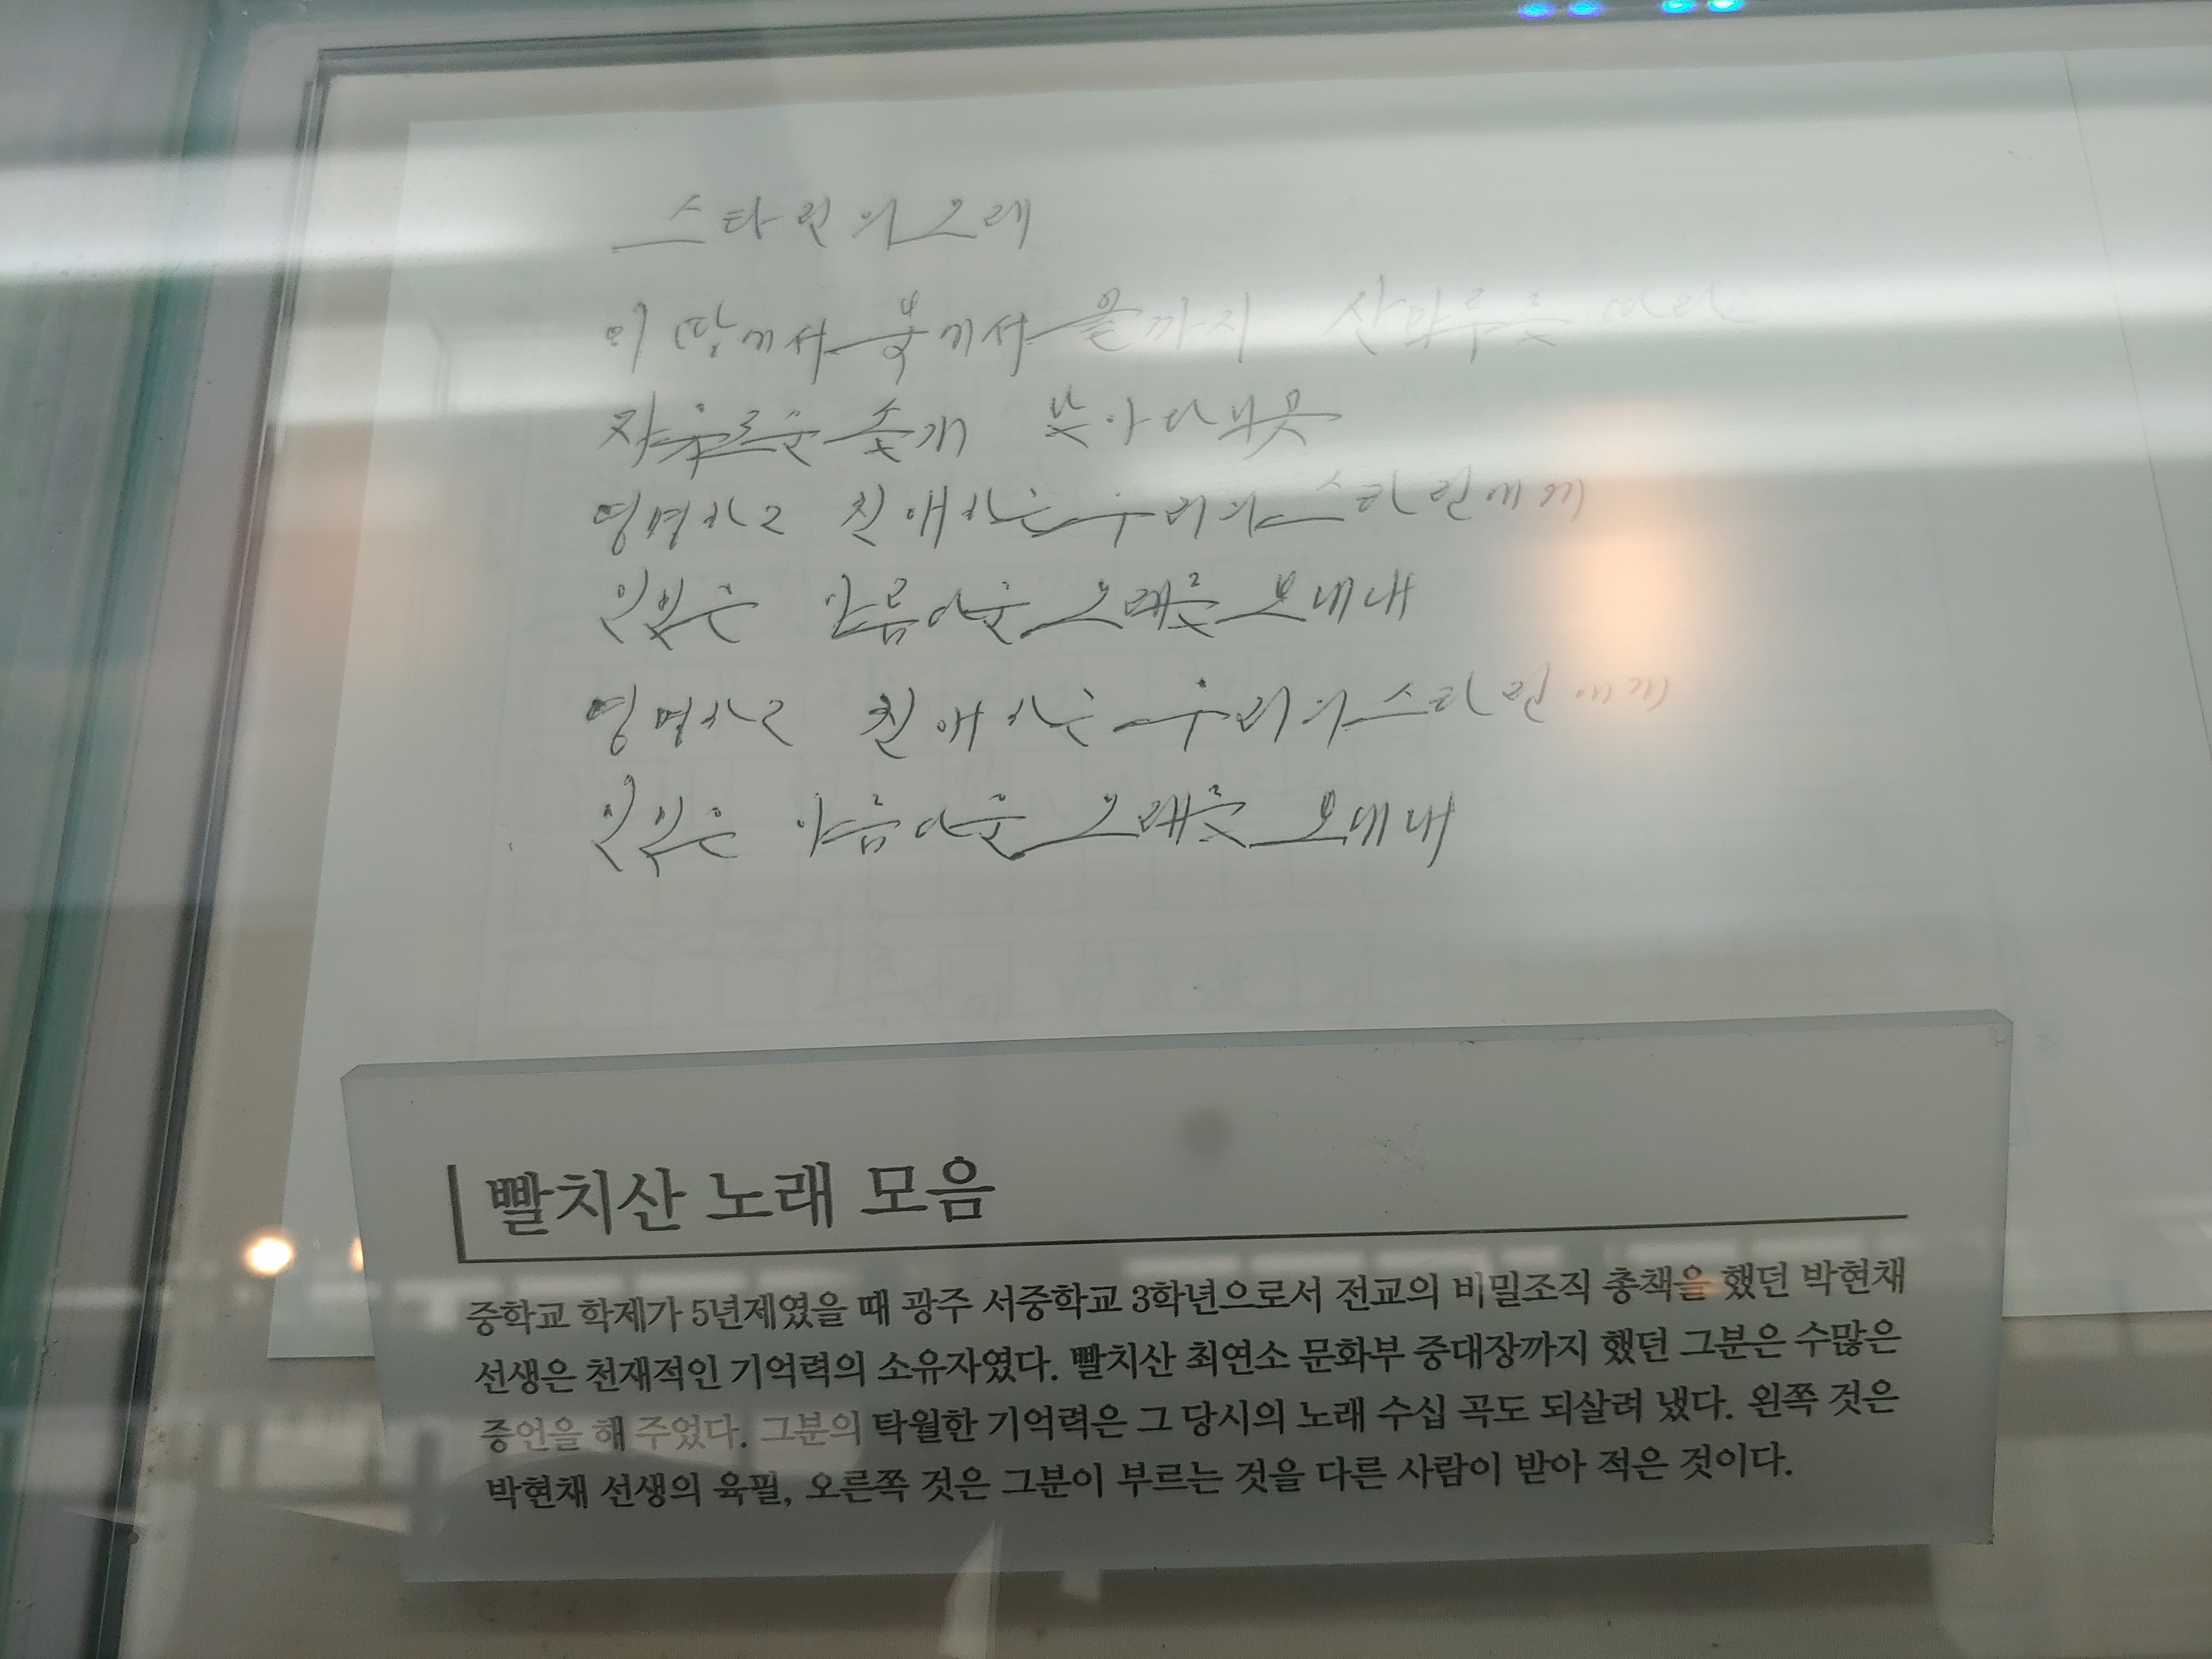 스타린의 노래
이 땅에서 북에서 끝까지 산마루를 따라
자유롭게
영명하고 친애하는 우리의 스타린에게
아름다운 노래를 보내네
영명하고 친애하는 우리의 스타린에게
아름다운 노래를 보내네
빨치산 노래 모음
중학교 학제가 5년제였을 때 광주 서중학교 3학년으로서 전교의 비밀조직 총책을 했던 박현채
선생은 천재적인 기억력의 소유자였다. 빨치산 최연소 문화부 중대장까지 했던 그분은 수많은
증언을 해 주었다. 그분의 탁월한 기억력은 그 당시의 노래 수십 곡도 되살려 냈다. 왼쪽 것은
박현채 선생의 육필, 오른쪽 것은 그분이 부르는 것을 다른 사람이 받아 적은 것이다.